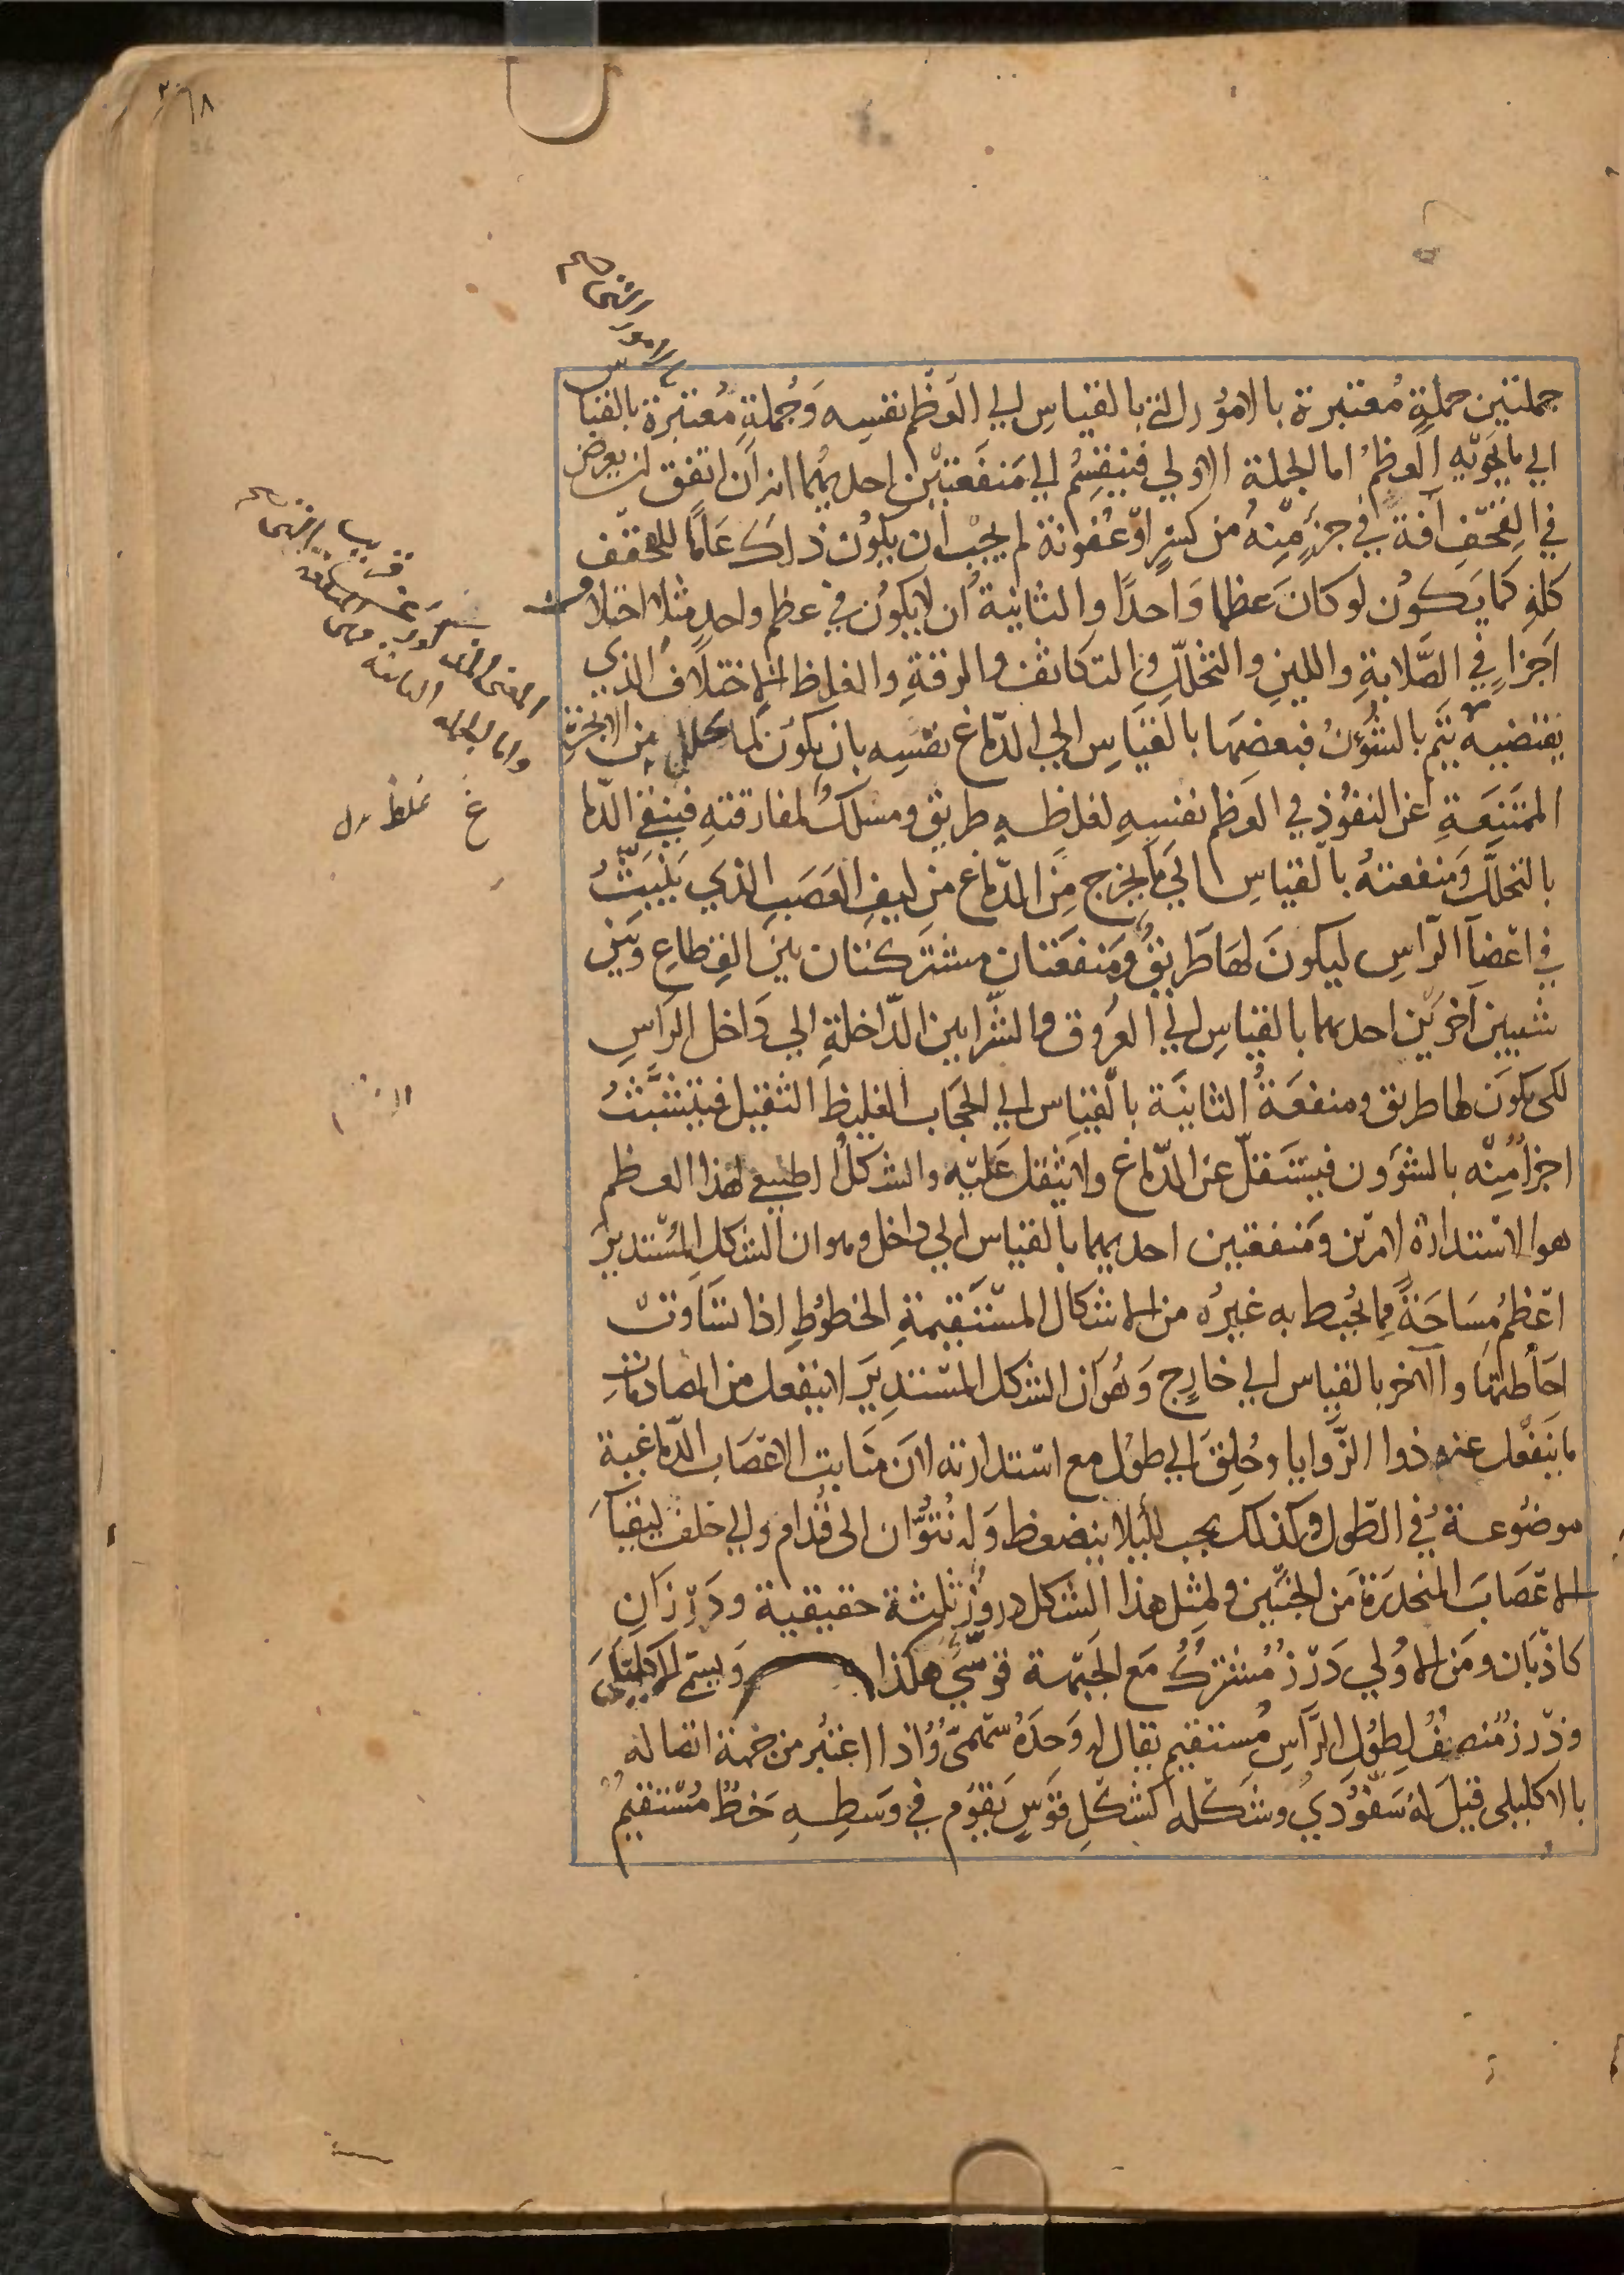 ٢٦٨
جملتين جملةٍ مُعتبرة بالامُور التي بالقياسِ الي العَظْم نفسِه وَجُملةٍ مُعتبرة بالقيا
س
الي ما يَحويه العَظمُ اما الجملة الاولي فينقسِمُ الي مَنفَعَتيْن احديهُما انه اَن اتفق ان يعرض
في القِحْفِ آفة في جزءٍ مِنهُ من كسرٍ اوْ عُفونة لم يجبْ ان يكوُن ذلكَ عَامًا للقحف
كلهِ كما يَكوُن لو كانَ عظما وَاحدًا والثانية ُان لا يكوُن في عظم واحدٍ مثلا اختلاف
اجَزاءٍ في الصَّلابةِ واللينِ والتخلّلِ والتكاثف والرقةِ والغلِظ الاختلافُ الذي
يقتضيه يتم بالشؤُنُ فبعضهَا بالقيَاسِ الي الدّماغ نفسِه بان يكوُن لما يتحلل من الابخرة
الممتنِعَةِ عَن النفوُذِ في العَظم نفسِهِ لغلظهِ طريق ومسلكٌ لمفارقتهِ فينقي الدّما
غ
بالتحلّل وَمنفعتهُ بالقياسِ الي ما يخرج مِن الدّماغ من ليفِ العَصَبِ الذي يَنبَثُّ
في اعْضاَ الرّاسِ ليكونَ لهَا طَريقٌ وَمَنفعَتان مشتركتان بين القِطاعِ وبَين
شيين آخَرَيْن احديهما بالقياسِ الي العرُوق والشّرايين الدّاخلةِ الي دَاخل الراسِ
لكى يكوَن لها طريق ومنفعَةُ الثانيَة بالقياس الي الحجَاب الغليظ الثقيل فيتشَبَّثُ
اجزا مِنْه بالشؤون فيستَقلّ عن الدّماغ ولا يثقل عَليْه والشَكلُ الطبيعي لهذا العظم
هو الاسْتدارَة لامرَيْن وَمَنفعتين احديهما بالقياس الي داخل وهو ان الشكل المسْتديرَ
اعْظمُ مِسَاحَةً مما يُحيط به غيرُه من الاشكال المسْتَقيمةِ الخطوُطِ اذا تسَاوتْ
احَاطتها والآخر بالقياس الي خارجٍ وَهُو اَن الشكل المسْتديرَ لا ينفعل من المصادماتِ
ما يَنفعُل عنه ذوا الزّوايا وخُلِقَ الي طوُل مع اسْتدارته لان مَنابت الاعْصَاب الدّماغية
موضُوعة في الطّول وكذلك يجب لئيلا ينضغط وَله نُتوُّان الى قُدام والي خلف ليقيَا
الاعْصَابَ المنحدرَة مَن الجنبَيْن ولمثِل هذا الشكل دروُز ثلثة حقيقية ودَرْزَانِ
كاذبَان ومَن الاوُلي دَرْز مُشتركٌ مَع الجَبْهة قوسّيُ هكذا وَيسمَّي الاكليلي
وَدْرز مُنصِفٌ لِطوُلِ الرّاسِ مُستقيم يقال له وَحدَهُ سَهْمىٌّ وُاذا اعتبُر من جهة اتصاله
بالاكليلى قيلَ لهُ سَفّوُديٌ وشَكْله كشكْلِ قوْسٍ يَقوُم في وَسطِهِ خَطٌ مُسْتقيمٌ